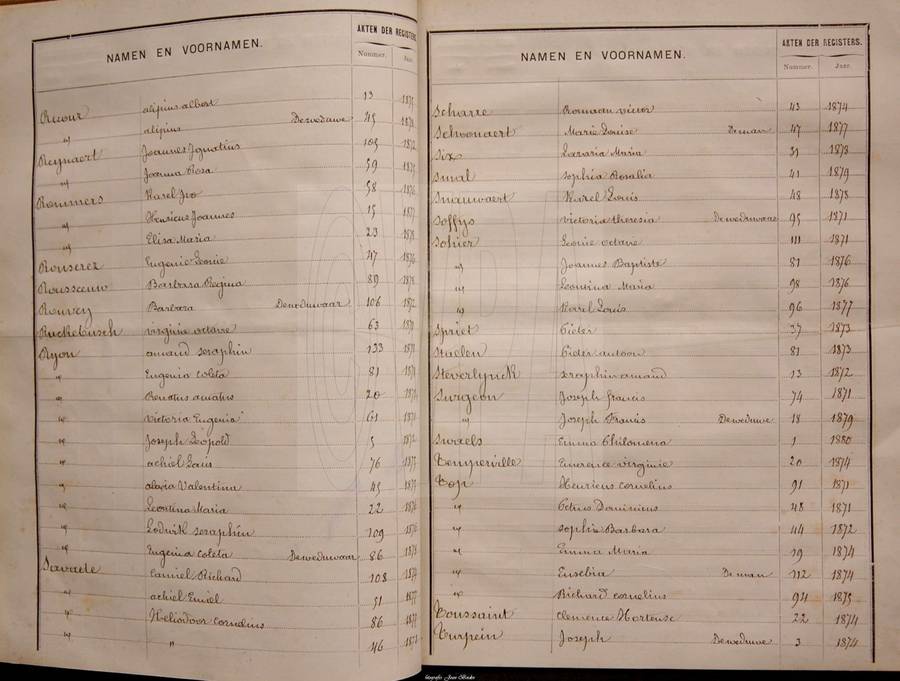 NAMEN EN VOORNAMEN.
AKTEN DER REGISTERS
Nummer. Jaar.
Ricour alipius albert 13 1875
" alipius De weduwe 45 1878
Reynaert Joannes Ignatius 105 1872
" Joanna Rosa 59 1875
Rommers Karel Ivo 58 1876
" Henricus Joannes 15 1877
" Elisa Maria 23 1878
Rouserez Eugenie Leonie 47 1876
Rousseeuw Barbara Regina 89 1878
Rouvey Barbara De weduwaar 106 1872
Ruckebusch virginie octavie 63 1871
Ryon amand seraphin 133 1871
" Eugenia Coleta 81 1871
" Renatus amatus 20 1871
" Victoria Eugenia 61 1871
" Joseph Leopold 5 1872
" achiel Louis 76 1877
" Valentina 45 1877
" Leontina Maria 22 1876
" Lodwik seraphin 109 1876
" Eugenia Coleta De weduwaar 86 1878
Savaete Camiel Richard 108 1874
" achiel Emiel 51 1877
" Heliodoor Cornelius 86 1877
" " 46 1878
NAMEN EN VOORNAMEN.
AKTEN DER REGISTERS.
Nummer. Jaar.
Scharre Romaan victor 43 1874
Schoonaert Marie Louise De man 47 1877
Six Maria 31 1873
Smal Sophia Rosalia 41 1879
Snauwaert Karel Louis 48 1873
Soffys Victoria theresia De weduwaar 95 1871
Sohier Leonie octavie 111 1871
" Joannes Baptiste 81 1876
" Leontina Maria 98 1876
" Karel Louis 96 1877
Spriet Pieter 37 1873
Staelen Pieter antoon 81 1873
Steverlynck seraphin amand 13 1872
Surgeon Joseph francis 74 1871
" Joseph Francis De weduwe 18 1879
Swaels Emma Philomena 1 1880
Temperville Emerence virginie 20 1874
Top Henricus cornelius 91 1871
" Petrus Dominicus 48 1871
" sophie Barbara 44 1872
" Emma Maria 19 1874
" Eusebia De man 112 1874
" Richard cornelius 94 1875
Toussaint Clemence Hortense 22 1874
Turpein Joseph De weduwe 3 1874
fotografie Jean Binke